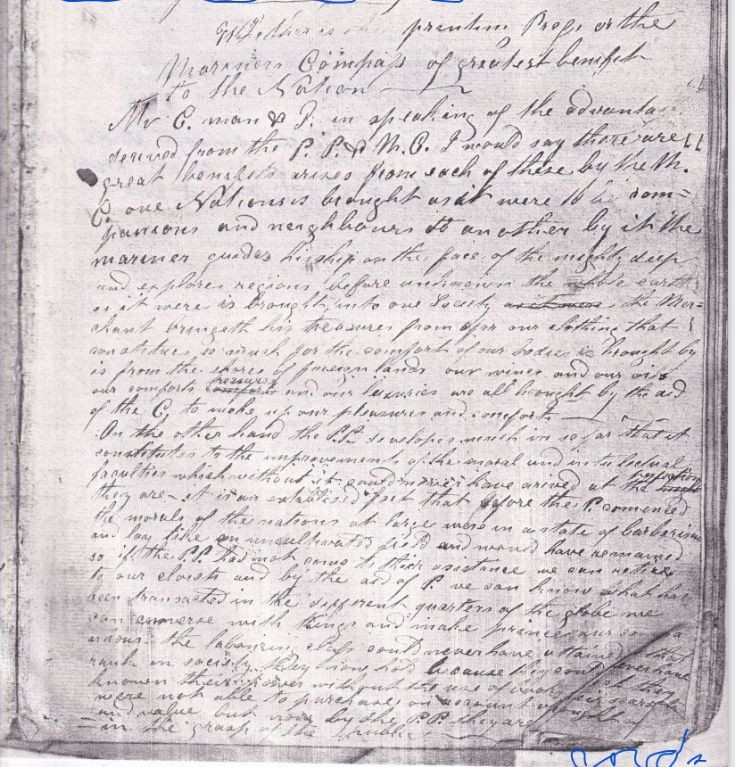 Whether is the printing Press or the
Mariners Compass of greatest benefit
to the Nation
Mr C. man & J. in speaking of the advanta
derived from the P. P. & M. C. I would say there are
great benefits arises from each of these by the M.
C. one Nation is brought as it were to be com=
panions and neighbours to another by it the
mariner guides his ship on the face of the mighty deep
and explores regions before unknown the whole earth
as it were is brought into one Society as it were the Mer=
chant bringeth his treasures from afar our clothing that
constitutes so much for the comfort of our bodies is brought by
is from the shores of foreign lands our wines and our
our comforts pleasures and our luxuries are all brought by the aid
of the C. to make up our pleasures and comforts
On the other hand the P.P. developes much in so far that it
constitutes to the improvements of the moral and intellectual
faculties which without it could never have arived at the
they are - it is an established fact that before the P. comenced
the morals of the nations at large were in a state of barbarism
and lay like an uncultivated field and would have remained
so if the P.P. had not come to their assistance we can retire
to our closets and by the aid of P. we can know what has
been transacted in the different quarters of the globe we
can converse with things and make princes our
the labouring class could never have attained that
rank in society they now had because they could never have
known their without the use of
were not able to purchase on account of
and value but now by the P.P. they are
in the grasp of the